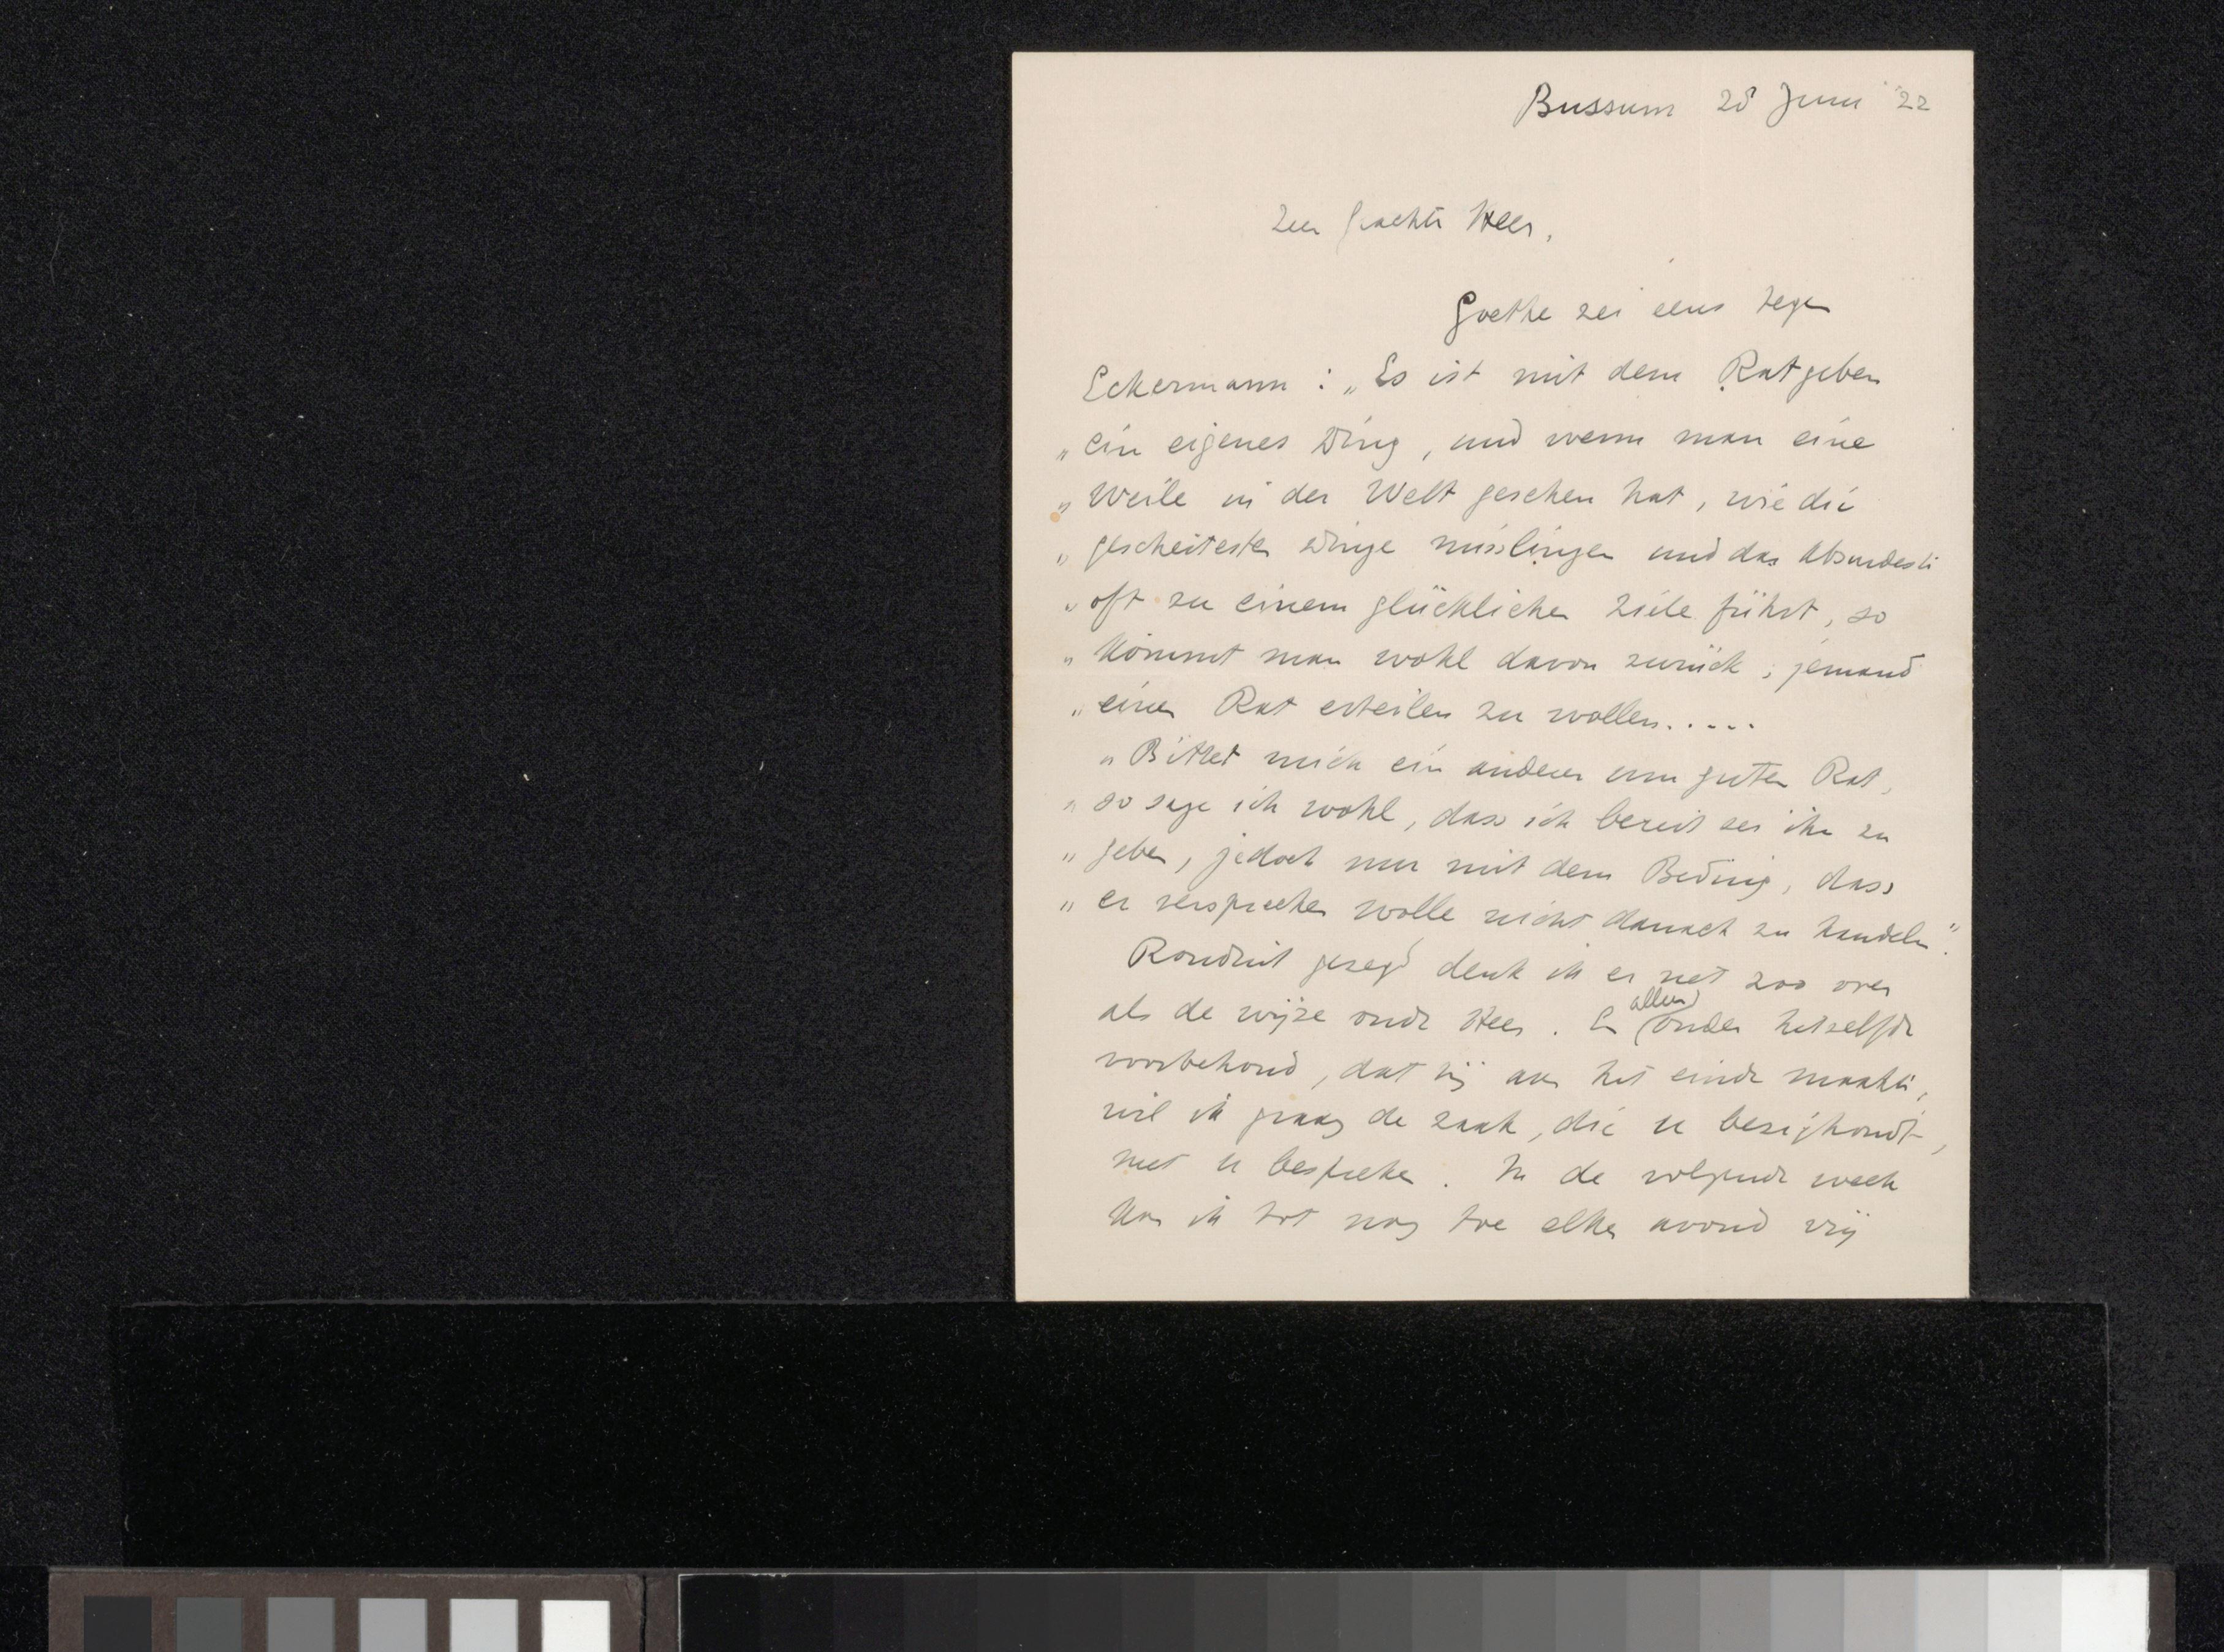 Bussum 28 Juni '22
Zeer geachte Heer,
Goethe zei eens tegen
Eckermann : „Es ist mit dem Ratgeben
„ ein eigenes Ding, und wenn man eine
„ Weile in der Welt gesehen hat, wie die
„ gescheitesten Dinge misslingen und das Absurdeste
„ oft zu einem glücklichen Ziele führt, so
„ kommt man wohl davon zurück, jemand
„ einen Rat erteilen zu wollen.....
„ Bittet mich ein anderer um guten Rat,
„ so sage ich wohl, dass ich bereit sei ihn zu
„ geben, jedoch nur mit dem Beding, dass
„ er versprechen wolle nicht danach zu handeln".
Ronduit gezegd denk ik er net zoo over
als de wijze oude Heer. En (alleen) onder hetzelfde
voorbehoud, dat hij aan het einde maakte,
wil ik graag de zaak, die u bezighoudt,
met u bespreken. In de volgende week
ben ik tot nog toe elken avond vrij